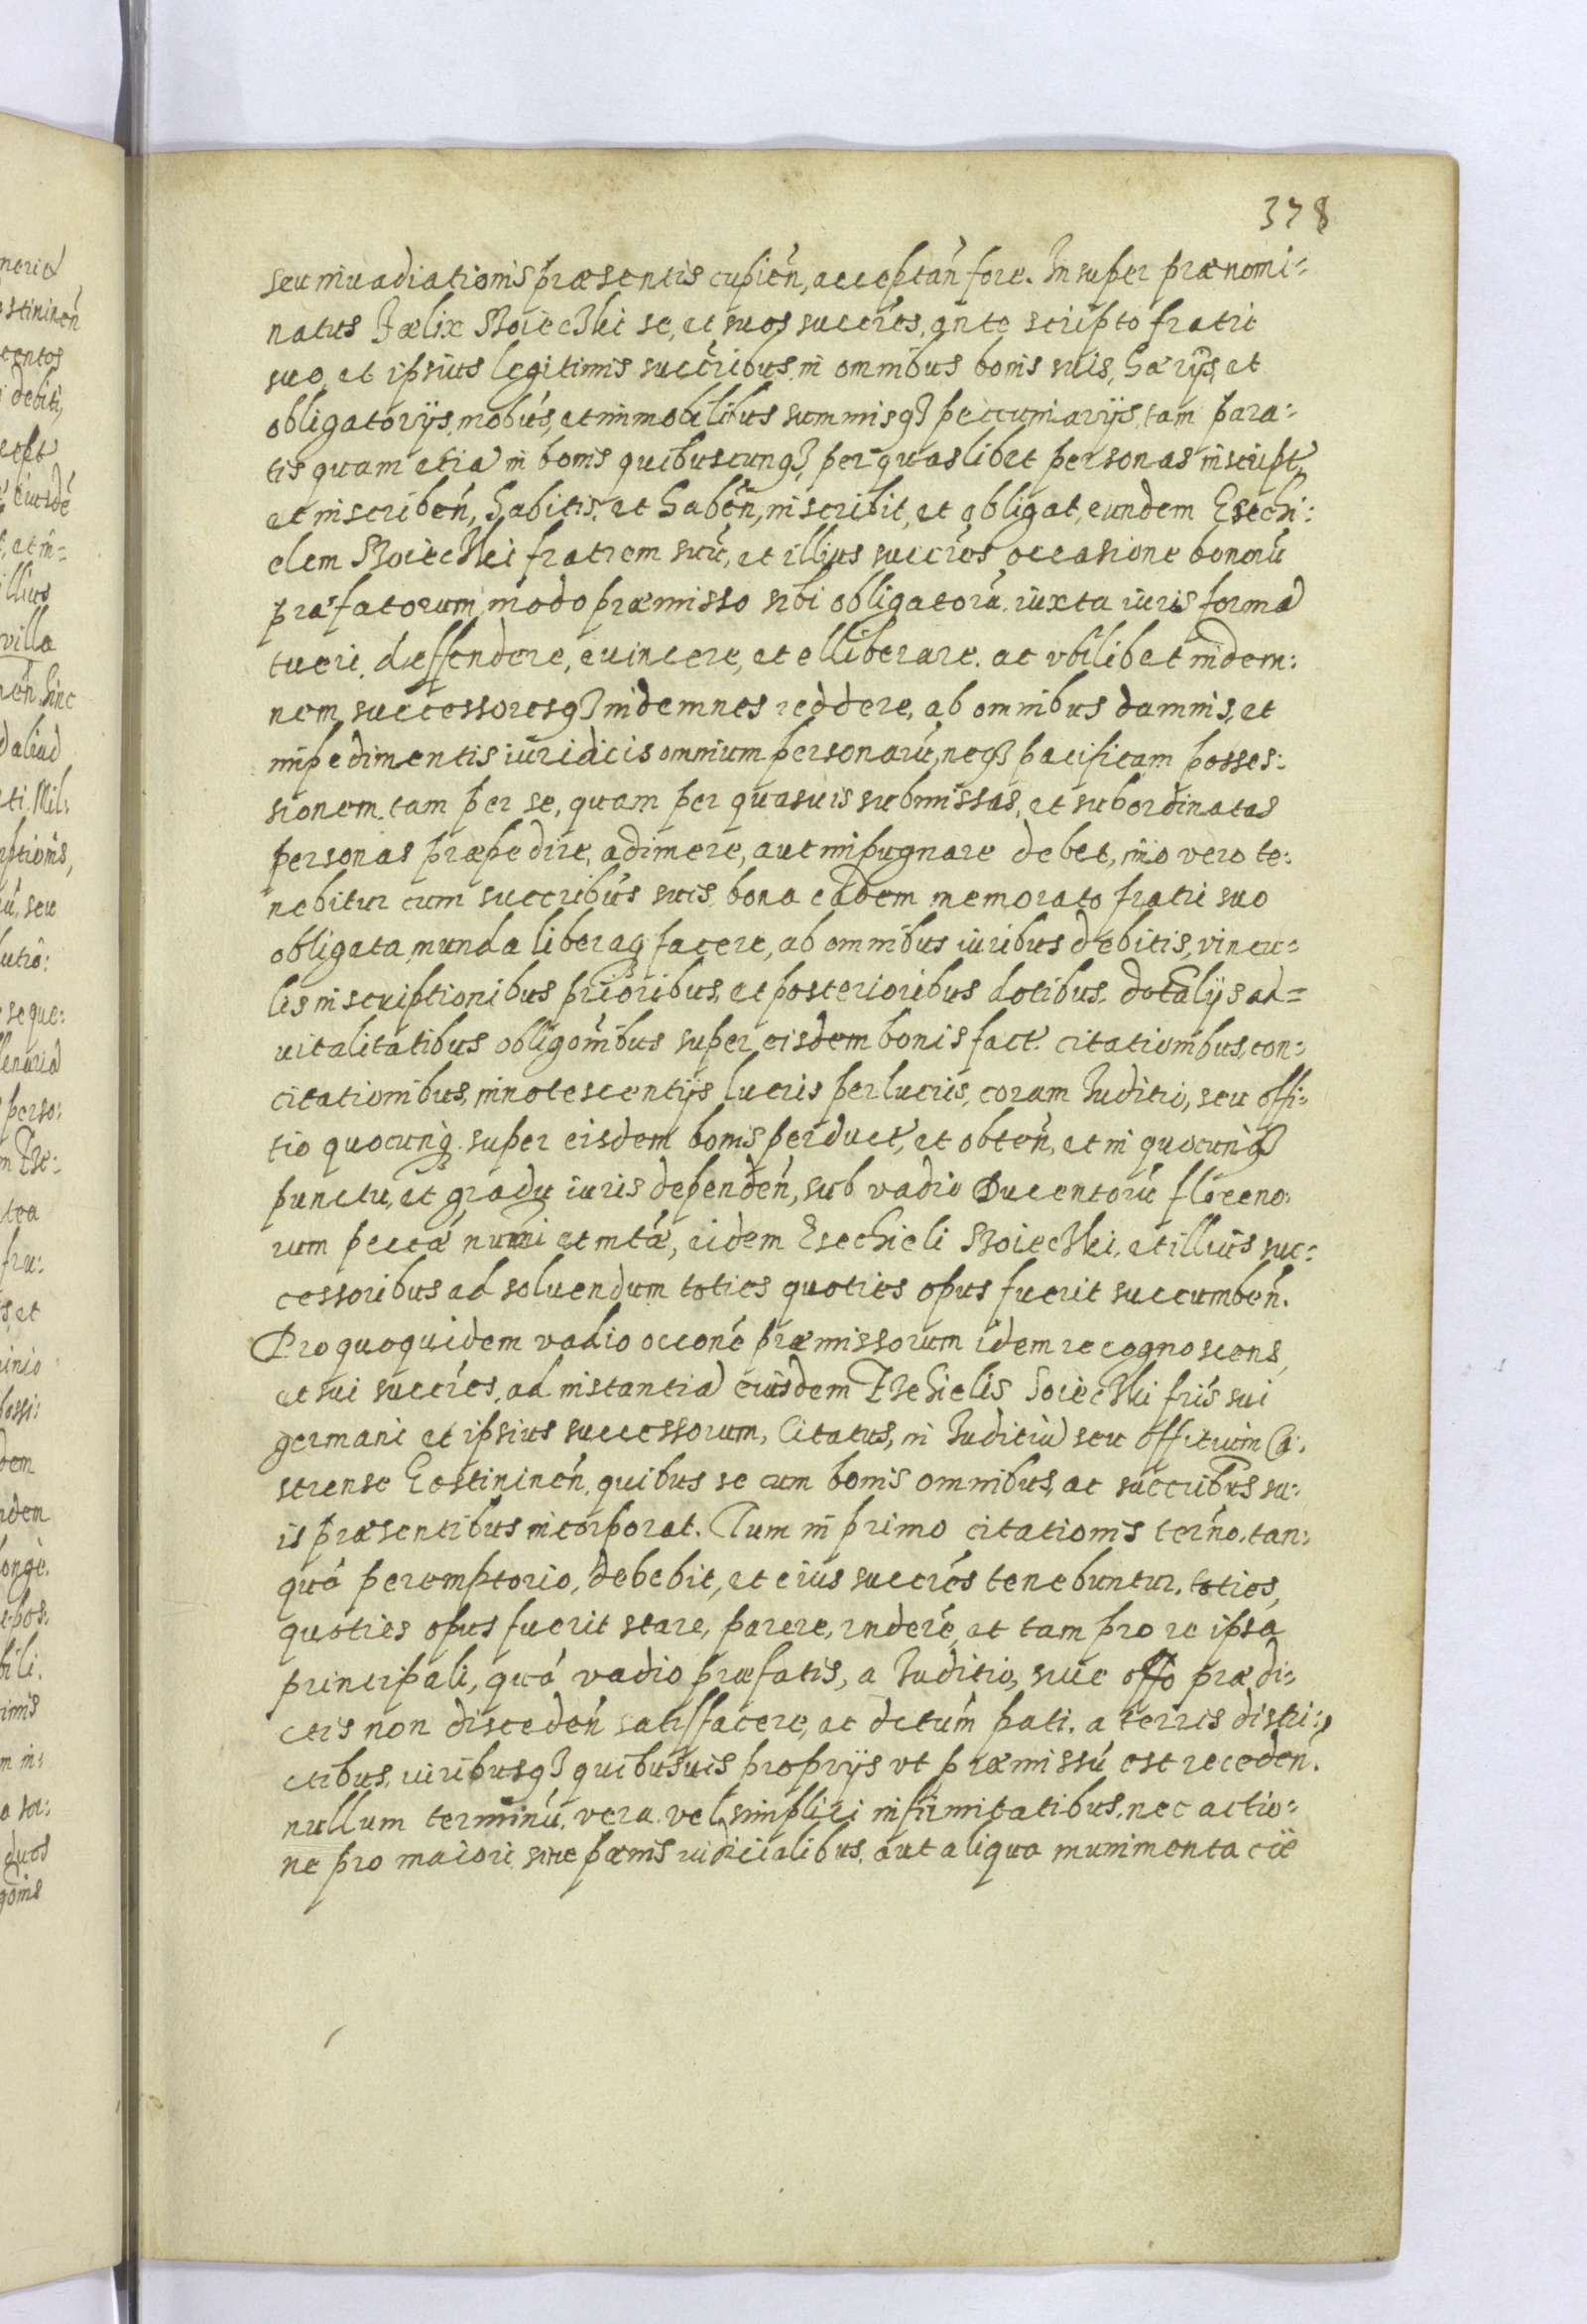 378
seu invadiationis præsentis cupien̄, acceptan̄ fore. Insuper prænomi:
natus Fælix Woiecki se, et suos succres̄, ante scripto fratri
suo, et ipsius legitimis succribus̄, in omnibus bonis suis, hæryis, et
obligatorijs, mobus̄, et immobilibus summisqȝ peccuniarijs, tam para:
tis quam etiā in bonis quibuscunqȝ, per quaslibet personas inscript,
et inscriben̄, habitis, et haben̄, inscribit, et obligat, eundem Esechi:
elem Woiecki fratrem suū, et illius succres̄ occasione bonorū
præfatorum, modo præmisso sibi obligatorū, iuxta iuris formā
tueri, deffendere, euincere, et elliberare, ac vbilibet indem:
nem, successoresqȝ indemnes reddere, ab omnibus damnis, et
impedimentis iuridicis omnium personarū, neqȝ pacificam posses:
sionem, tam per se, quam per quasuis submissas, et subordinatas
personas præpedire, adimere, aut impugnare debet, imo vero te:
nebitur cum succribus̄ suis, bona eadem memorato fratri suo
obligata, munda liberaqȝ facere, ab omnibus iuribus debitis, vincu:
lis inscriptionibus prioribus, et posterioribus dotibus, dotalijs ad=
uitalitatibus obligom̄ibus super eisdem bonis fact. citationibus, con:
citationibus, innotescentijs lucris perlucris, coram Iuditio, seu offi:
tio quocunqȝ super eisdem bonis perduct, et obten̄, et in quocunqȝ
punctu, et gradu iuris dependen̄, sub vadio Ducentorū floreno:
rum peccǣ numi et mtǣ, eidem Esechieli Woiecki, et illius suc:
cessoribus ad soluendum toties quoties opus fuerit succumben̄.
Pro quoquidem vadio occonē præmissorum idem recognoscens,
et sui succres̄, ad instantiā eiusdem Ezehielis Soiecki fris̄ sui
germani et ipsius successorum, Citatus, in Iuditiū seu offitium Ca:
strense Gostininen̄, quibus se cum bonis omnibus, ac succribus̄ su:
is præsentibus incorporat. Tum in primo citationis terno̅, tan:
quā peremptorio, debebit, et eius succres̄ tenebuntur, toties,
quoties opus fuerit stare, parere, rndere̅, et tam pro re ipsa
principali, quā vadio præfatis, a Iuditio, siue offo prædi:
ctis non disceden̄ satisfacere, ac dctum̄ pati, a terris distri:
ctibus, iuribusqȝ quibusuis proprijs vt præmissū est receden̄.
nullum terminū, vera vel simplici infirmitatibus, nec actio:
ne pro maiori, siue pænis iudicialibus, aut aliqua munimenta cǣ